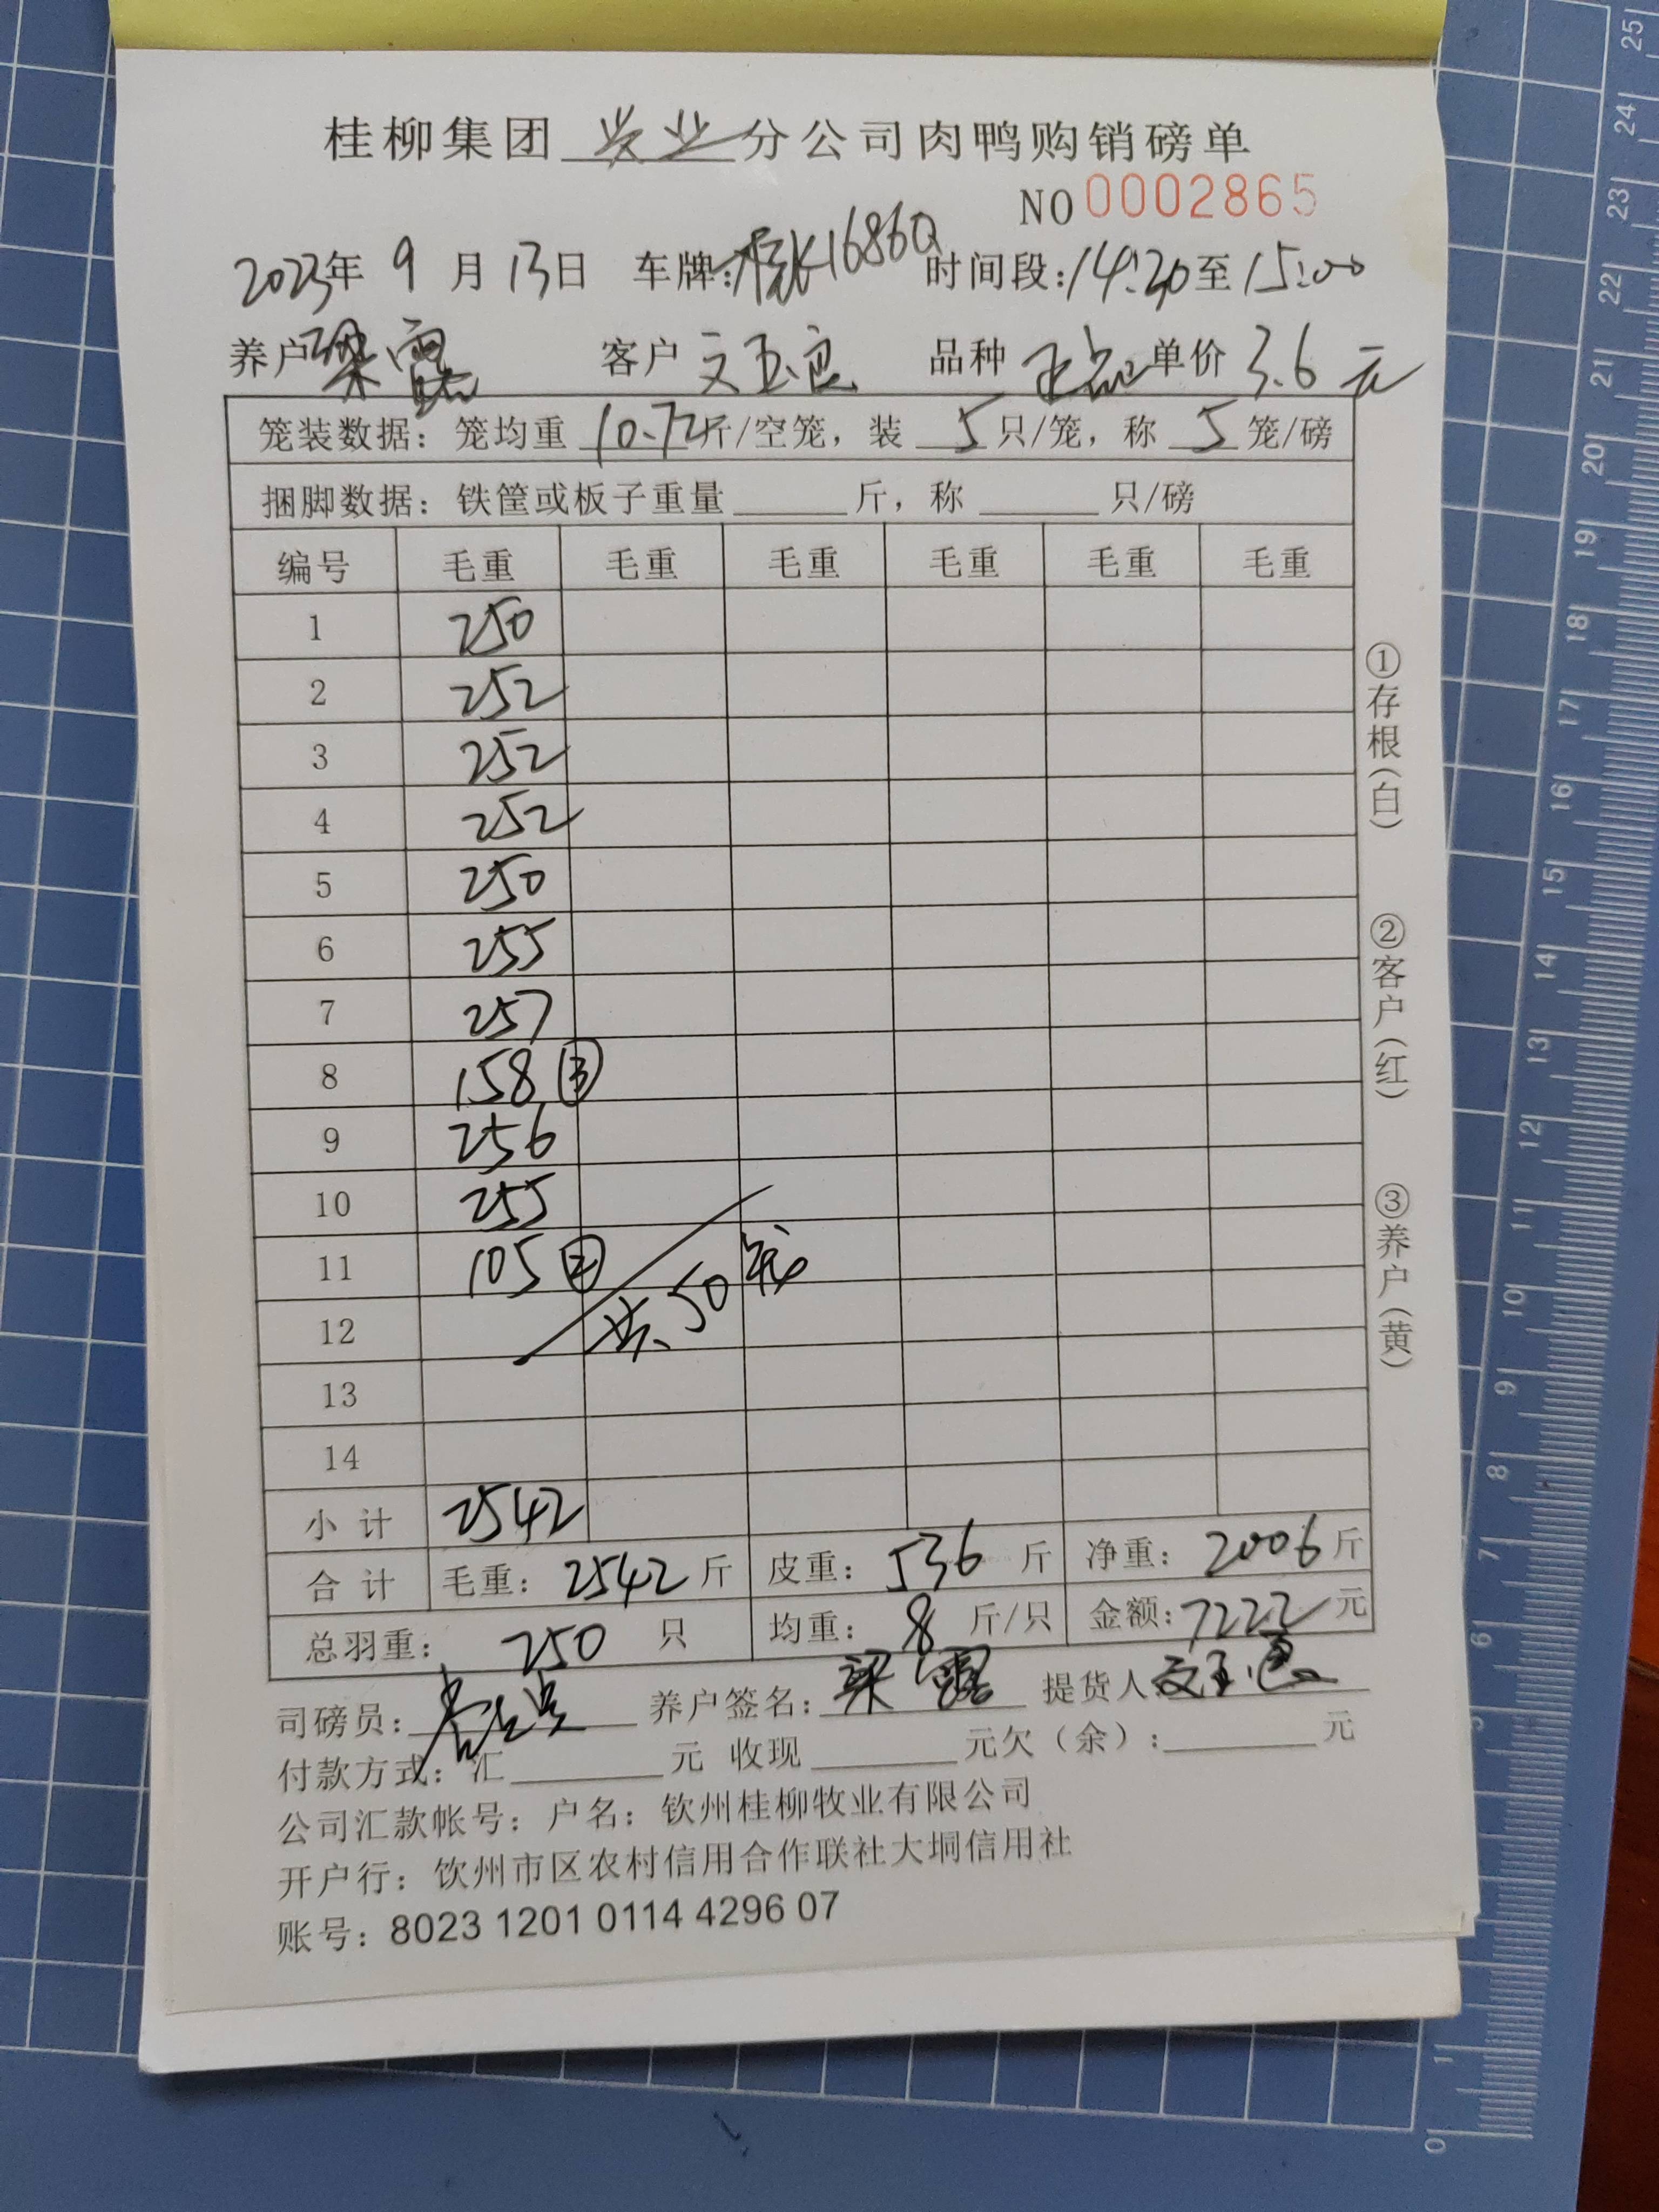 桂柳集团 兴业 分公司肉鸭购销磅单
NO 0002865
2023年 9 月 13日 车牌:桂K1686Q 时间段:14:20至15:00
养户 梁露 客户 文玉良 品种 正品 单价 3.6 元
笼装数据: 笼均重 10.72斤/空笼, 装 5 只/笼, 称 5 笼/磅
捆脚数据: 铁筐或板子重量 斤, 称 只/磅
编号 毛重 毛重 毛重 毛重 毛重 毛重
1 250
2 252
3 252
4 252
5 250
6 255
7 257
8 158 ③
9 256
10 255
11 105 ②
12 共50笼
13
14
小计 2542
合计 毛重: 2542 斤 皮重: 536 斤 净重: 2006斤
总羽重: 250 只 均重: 8 斤/只 金额:7222元
司磅员: 养户签名: 梁露 提货人:文玉良
付款方式: 汇 元 收现 元欠(余): 元
公司汇款帐号: 户名: 钦州桂柳牧业有限公司
开户行: 钦州市区农村信用合作联社大垌信用社
账号: 8023 1201 0114 4296 07
①存根(白)
②客户(红)
③养户(黄)
25
24
23
22
21
20
19
18
17
16
15
14
13
12
11
10
9
8
7
6
5
1
0